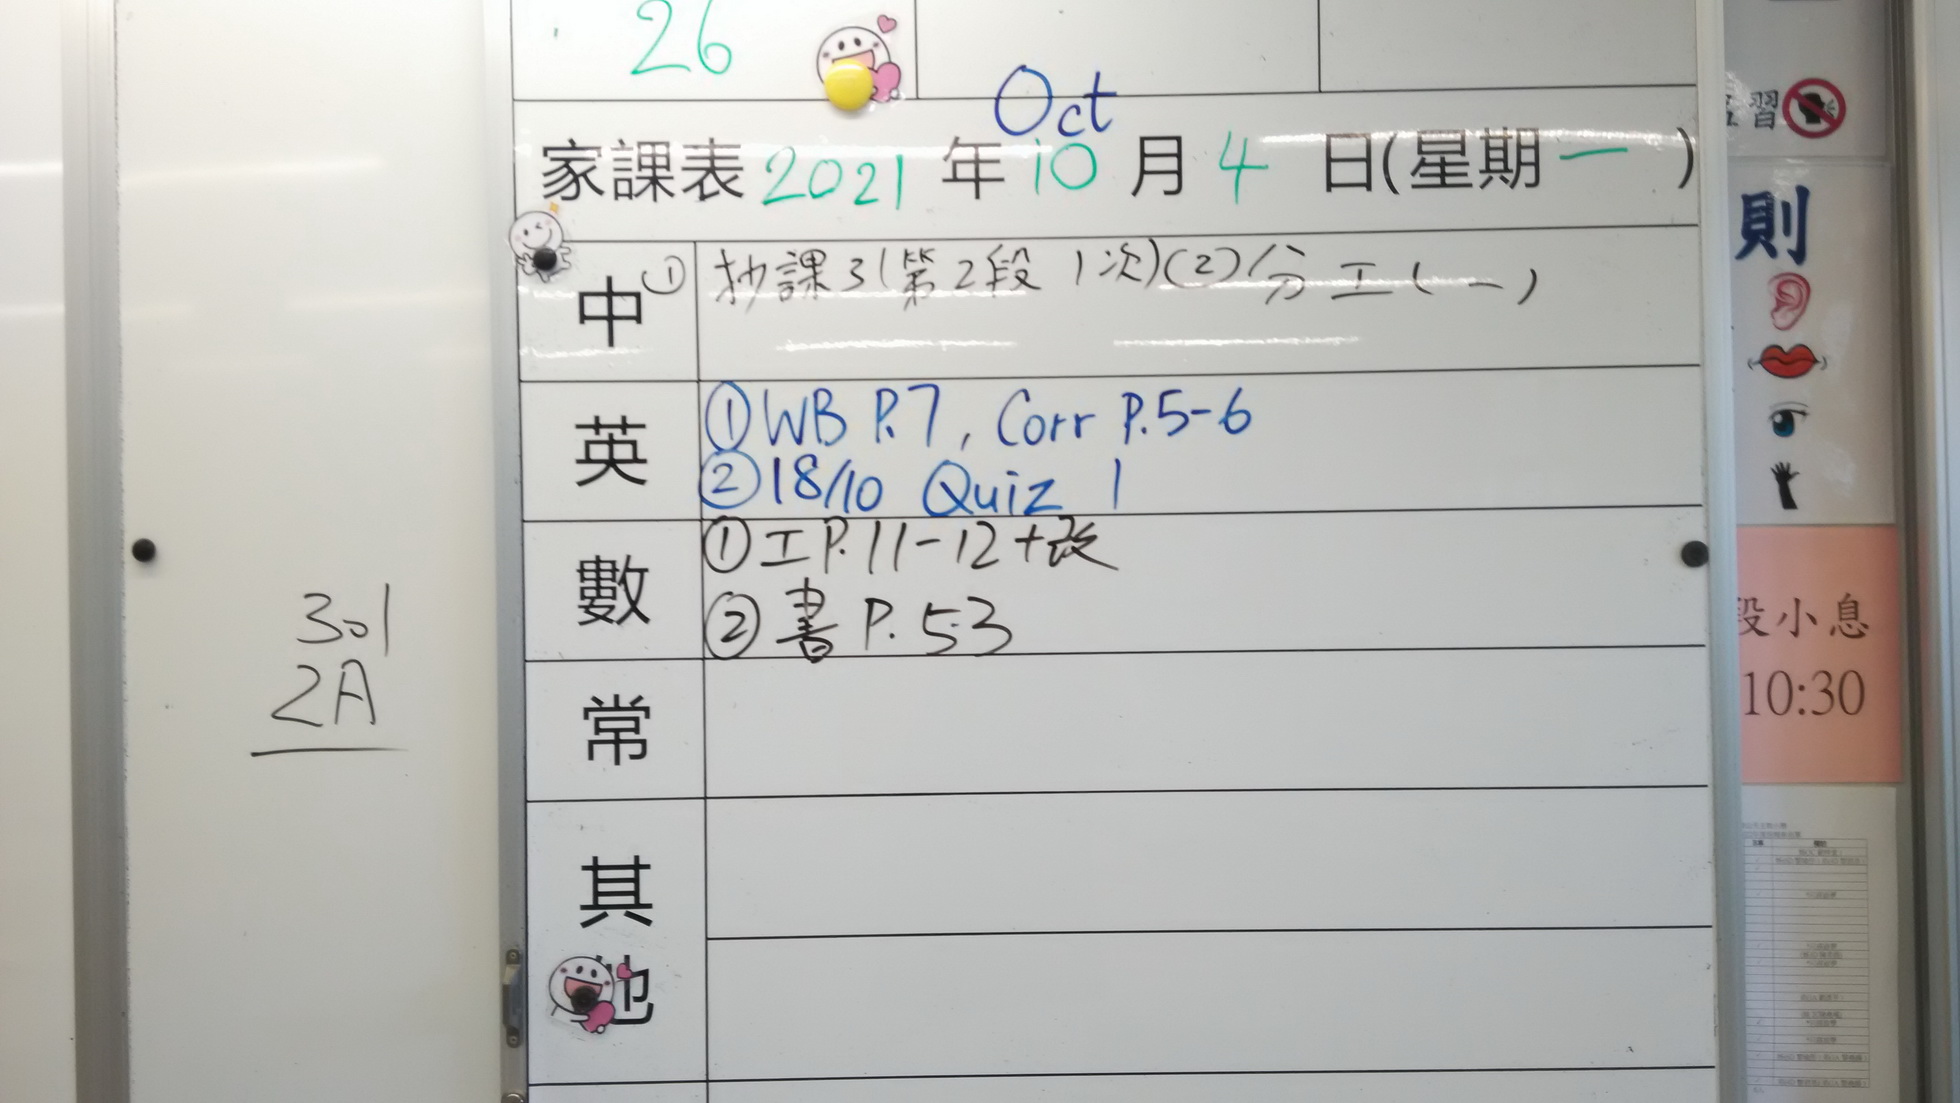 26
Oct
家課表 2021 年 10 月 4 日(星期一)
中 ① 抄課3(第2段1次)(2)分工(一)
英 ① WB P.7, Corr P.5-6
② 18/10 Quiz 1
數 ① 工P.11-12+改
② 書 P.53
常
其
他
301
2A
習
則
段小息
10:30